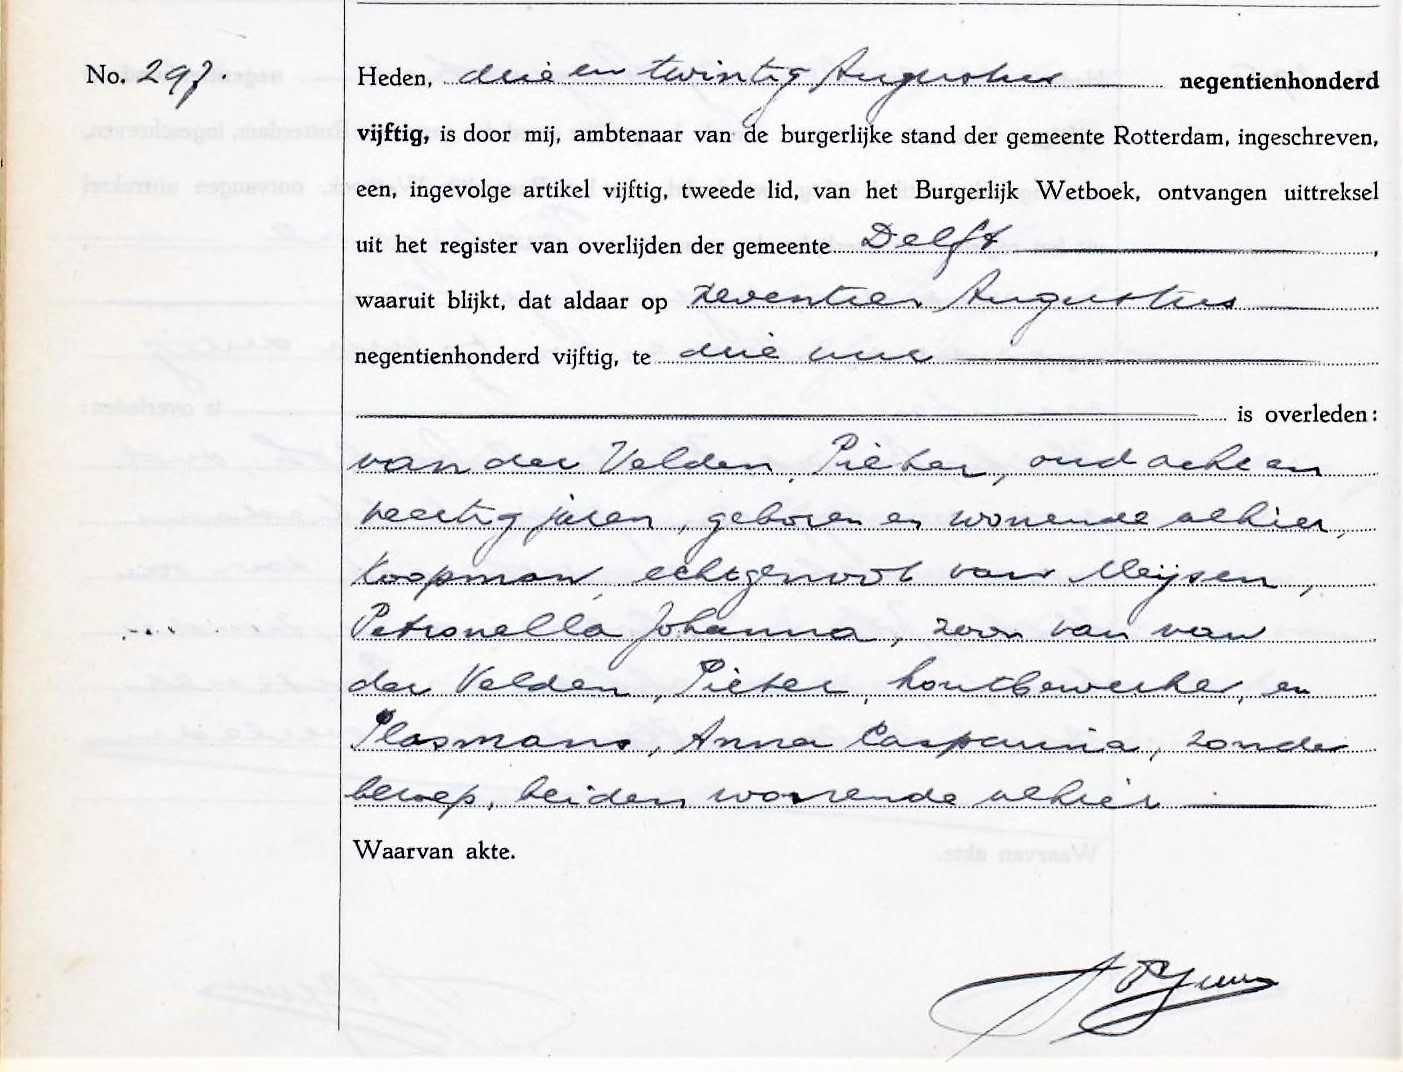 No. 297.
Heden, drie en twintig Augustus negentienhonderd
vijftig, is door mij, ambtenaar van de burgerlijke stand der gemeente Rotterdam, ingeschreven,
een, ingevolge artikel vijftig, tweede lid, van het Burgerlijk Wetboek, ontvangen uittreksel
uit het register van overlijden der gemeente Delft,
waaruit blijkt, dat aldaar op zeventien Augustus
negentienhonderd vijftig, te drie uur
is overleden:
van der Velden, Pieter, oud acht en
veertig jaren, geboren en wonende alhier,
koopman, echtgenoot van Meijsen,
Petronella Johanna, zoon van van
der Velden, Pieter, houtbewerker, en
Plasmans, Anna Casparina, zonder
beroep, beiden wonende alhier
Waarvan akte.